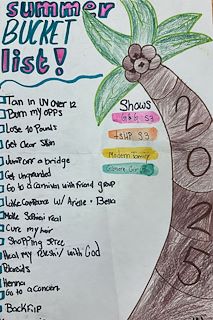 summer
BUCKET
list!
Tan in UV over 12
Burn my opps
Lose 10 Pounds
Get Clear Skin
Jump off a bridge
Get ungrounded
Go to a Carnival with friend group
Lake w/ Arielle + Bella
Make Safini real
Cure my hair
Shopping Spree
Heal my with God
Henna
Go to a Concert
BACKFlip
Shows
G&G S3
TSUP S3
Modern Family
Gilmore Girls
2025